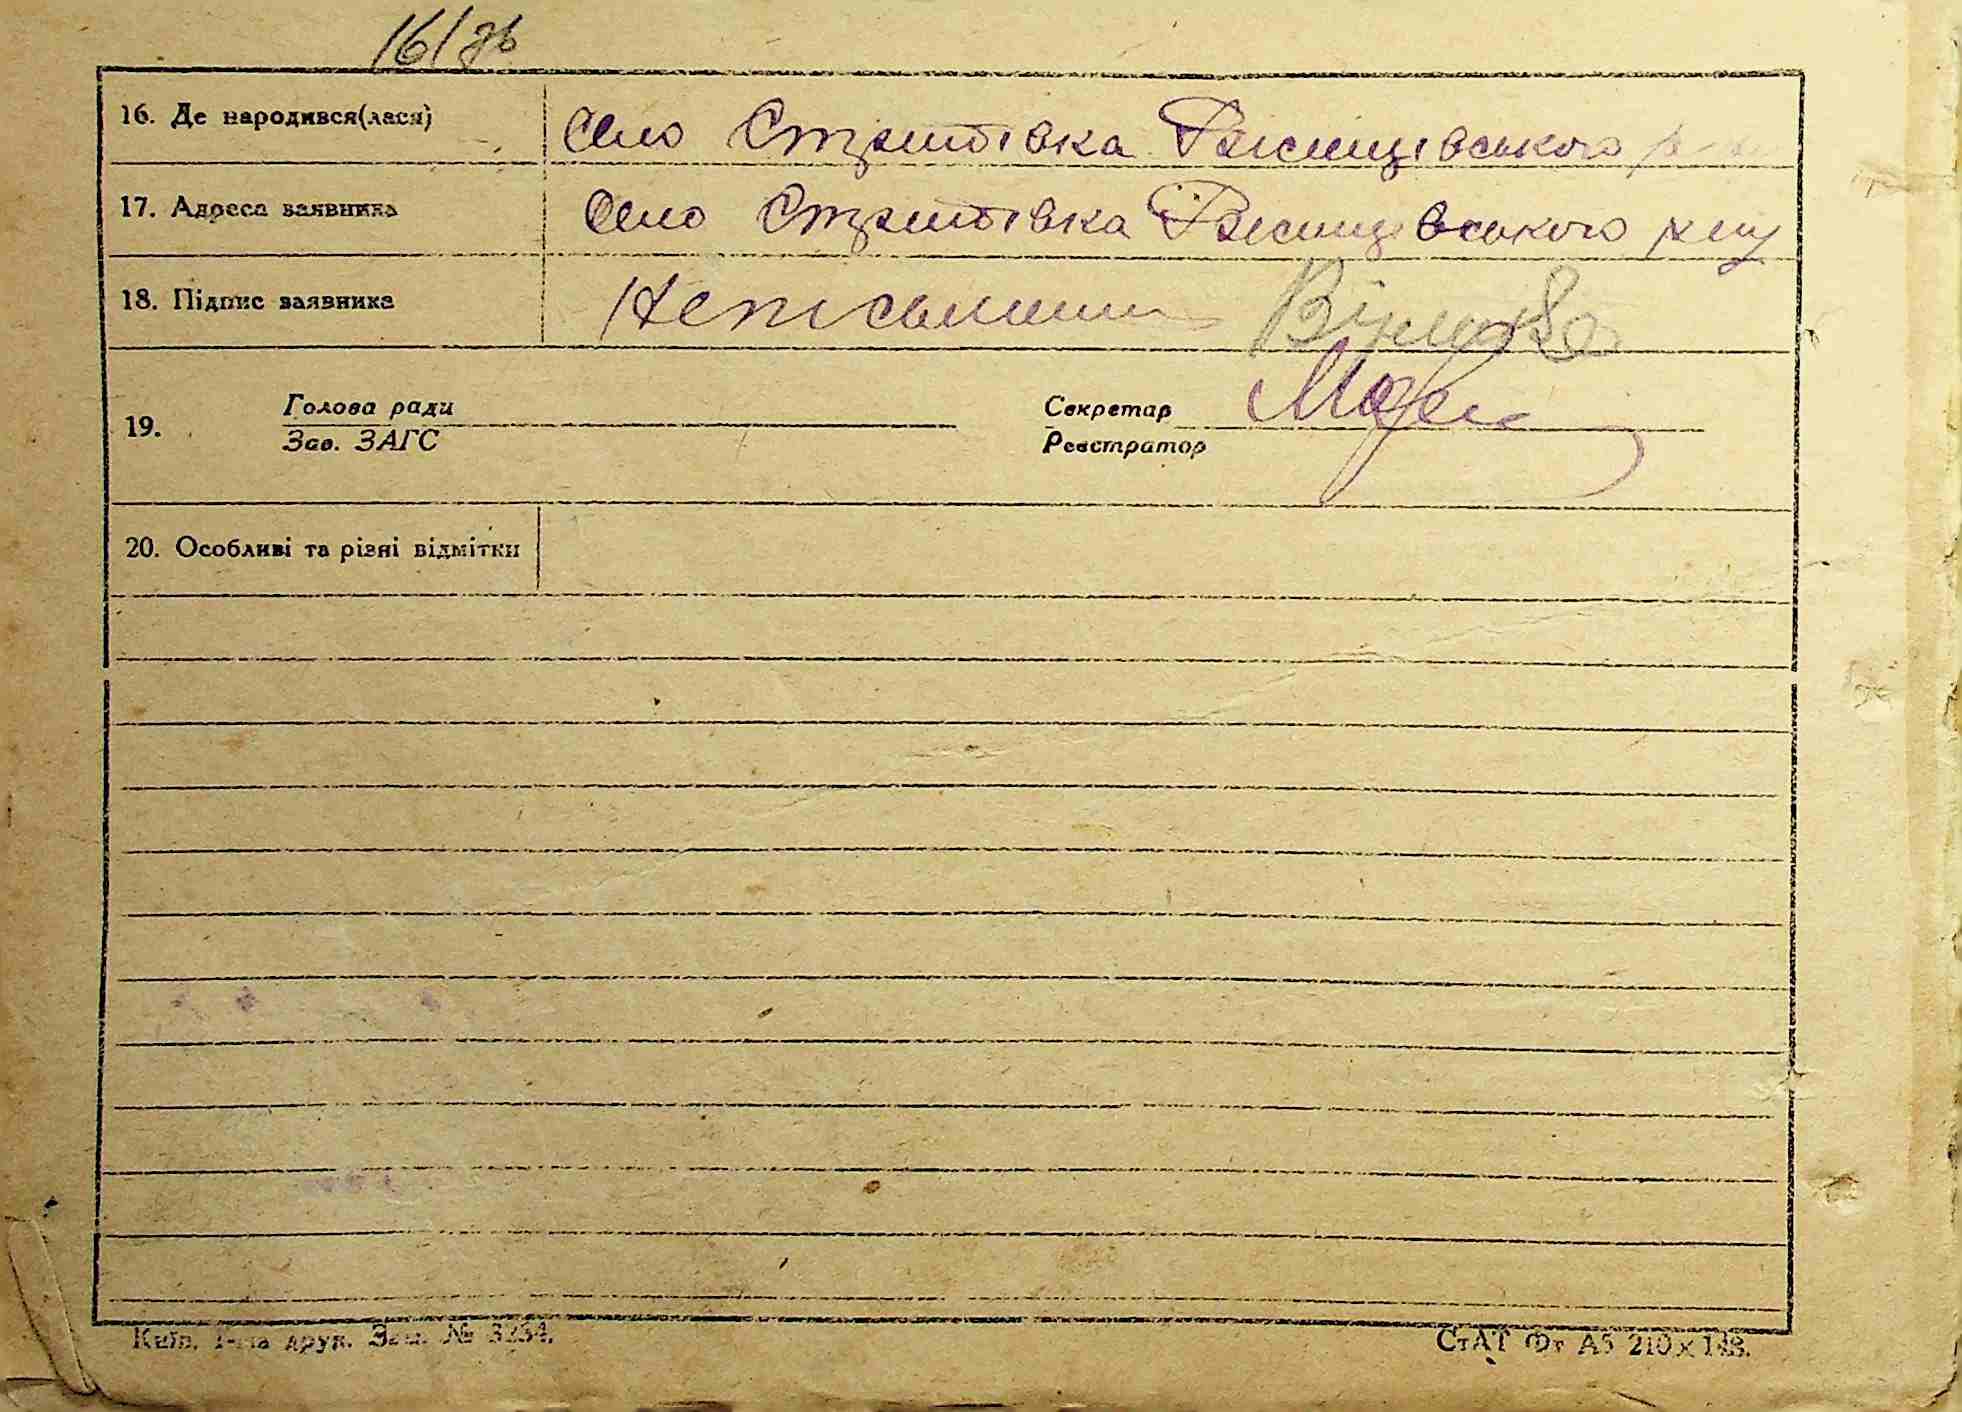 16/зв
16. Де народився(лася) Село Стритівка Ржищівського р-ну
17. Адреса заявника Село Стритівка Ржищівського р-ну
18. Підпис заявника Неписьменн
19. Голова ради Секретар
Зав. ЗАГС Реєстратор
20. Особливі та різні відмітки
Київ. 1-ша друк. Зам. № 3234.
СтАТ Фт А5 210 x 148.